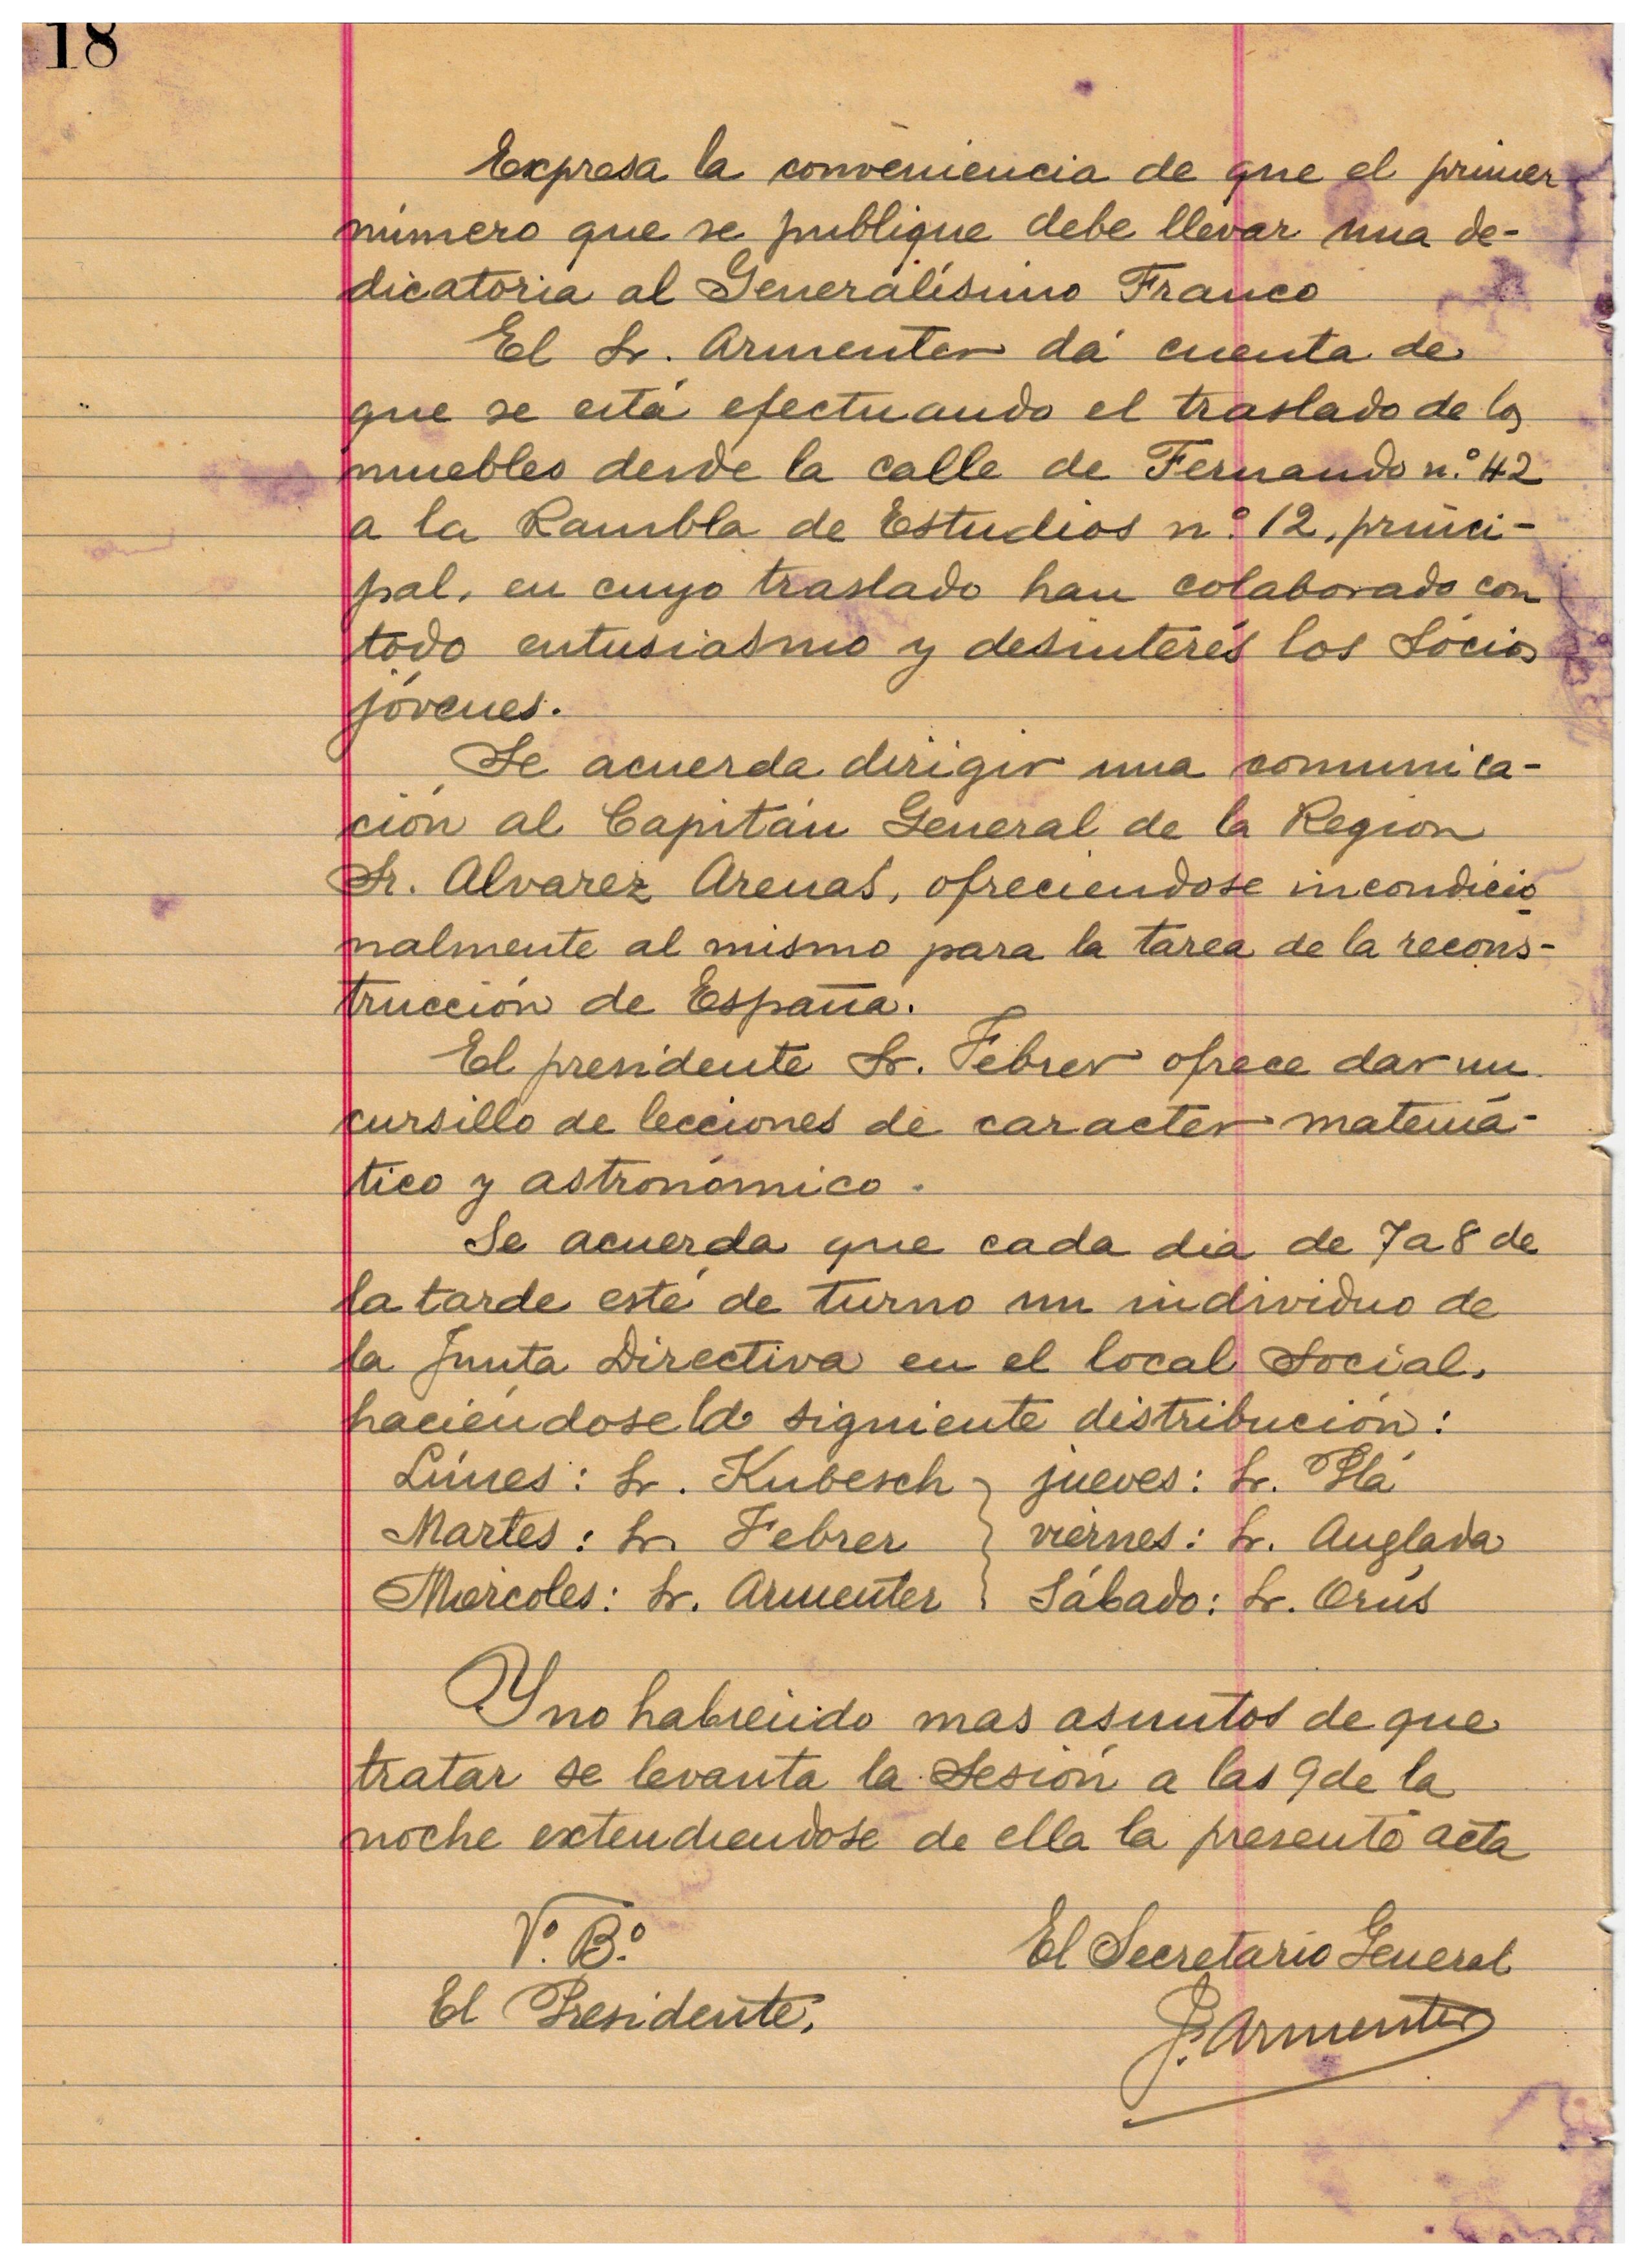 18
Expresa la conveniencia de que el primer
número que se publique debe llevar una de-
dicatoria al Generalísimo Franco
El Sr. Armenter dá cuenta de
que se está efectuando el traslado de los
muebles desde la calle de Fernando n.º 42
a la Rambla de Estudios n.º 12, princi-
pal, en cuyo traslado han colaborado con
todo entusiasmo y desinterés los Sócios
jóvenes.
Se acuerda dirigir una comunica-
ción al Capitán General de la Region
Sr. Alvarez Arenas, ofreciendose incondicio
nalmente al mismo para la tarea de la recons-
trucción de España.
El presidente Sr. Febrer ofrece dar un
cursillo de lecciones de caracter matemá-
tico y astronómico.
Se acuerda que cada dia de 7 a 8 de
la tarde esté de turno un individuo de
la Junta Directiva en el local Social,
haciéndose la siguiente distribución:
Lúnes: Sr. Kubesch } jueves: Sr. Plá
Martes: Sr. Febrer } viernes: Sr. Anglada
Miércoles: Sr. Armenter } Sábado: Sr. Orús
Y no habiendo mas asuntos de que
tratar se levanta la Sesión a las 9 de la
noche extendiendose de ella la presente acta
V.º B.º
El Presidente,
El Secretario General
J. Armenter